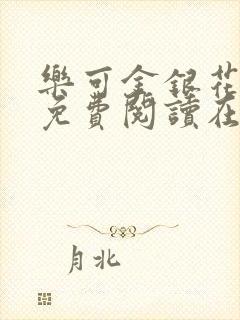 樂可金銀花
免費閱讀在
月北